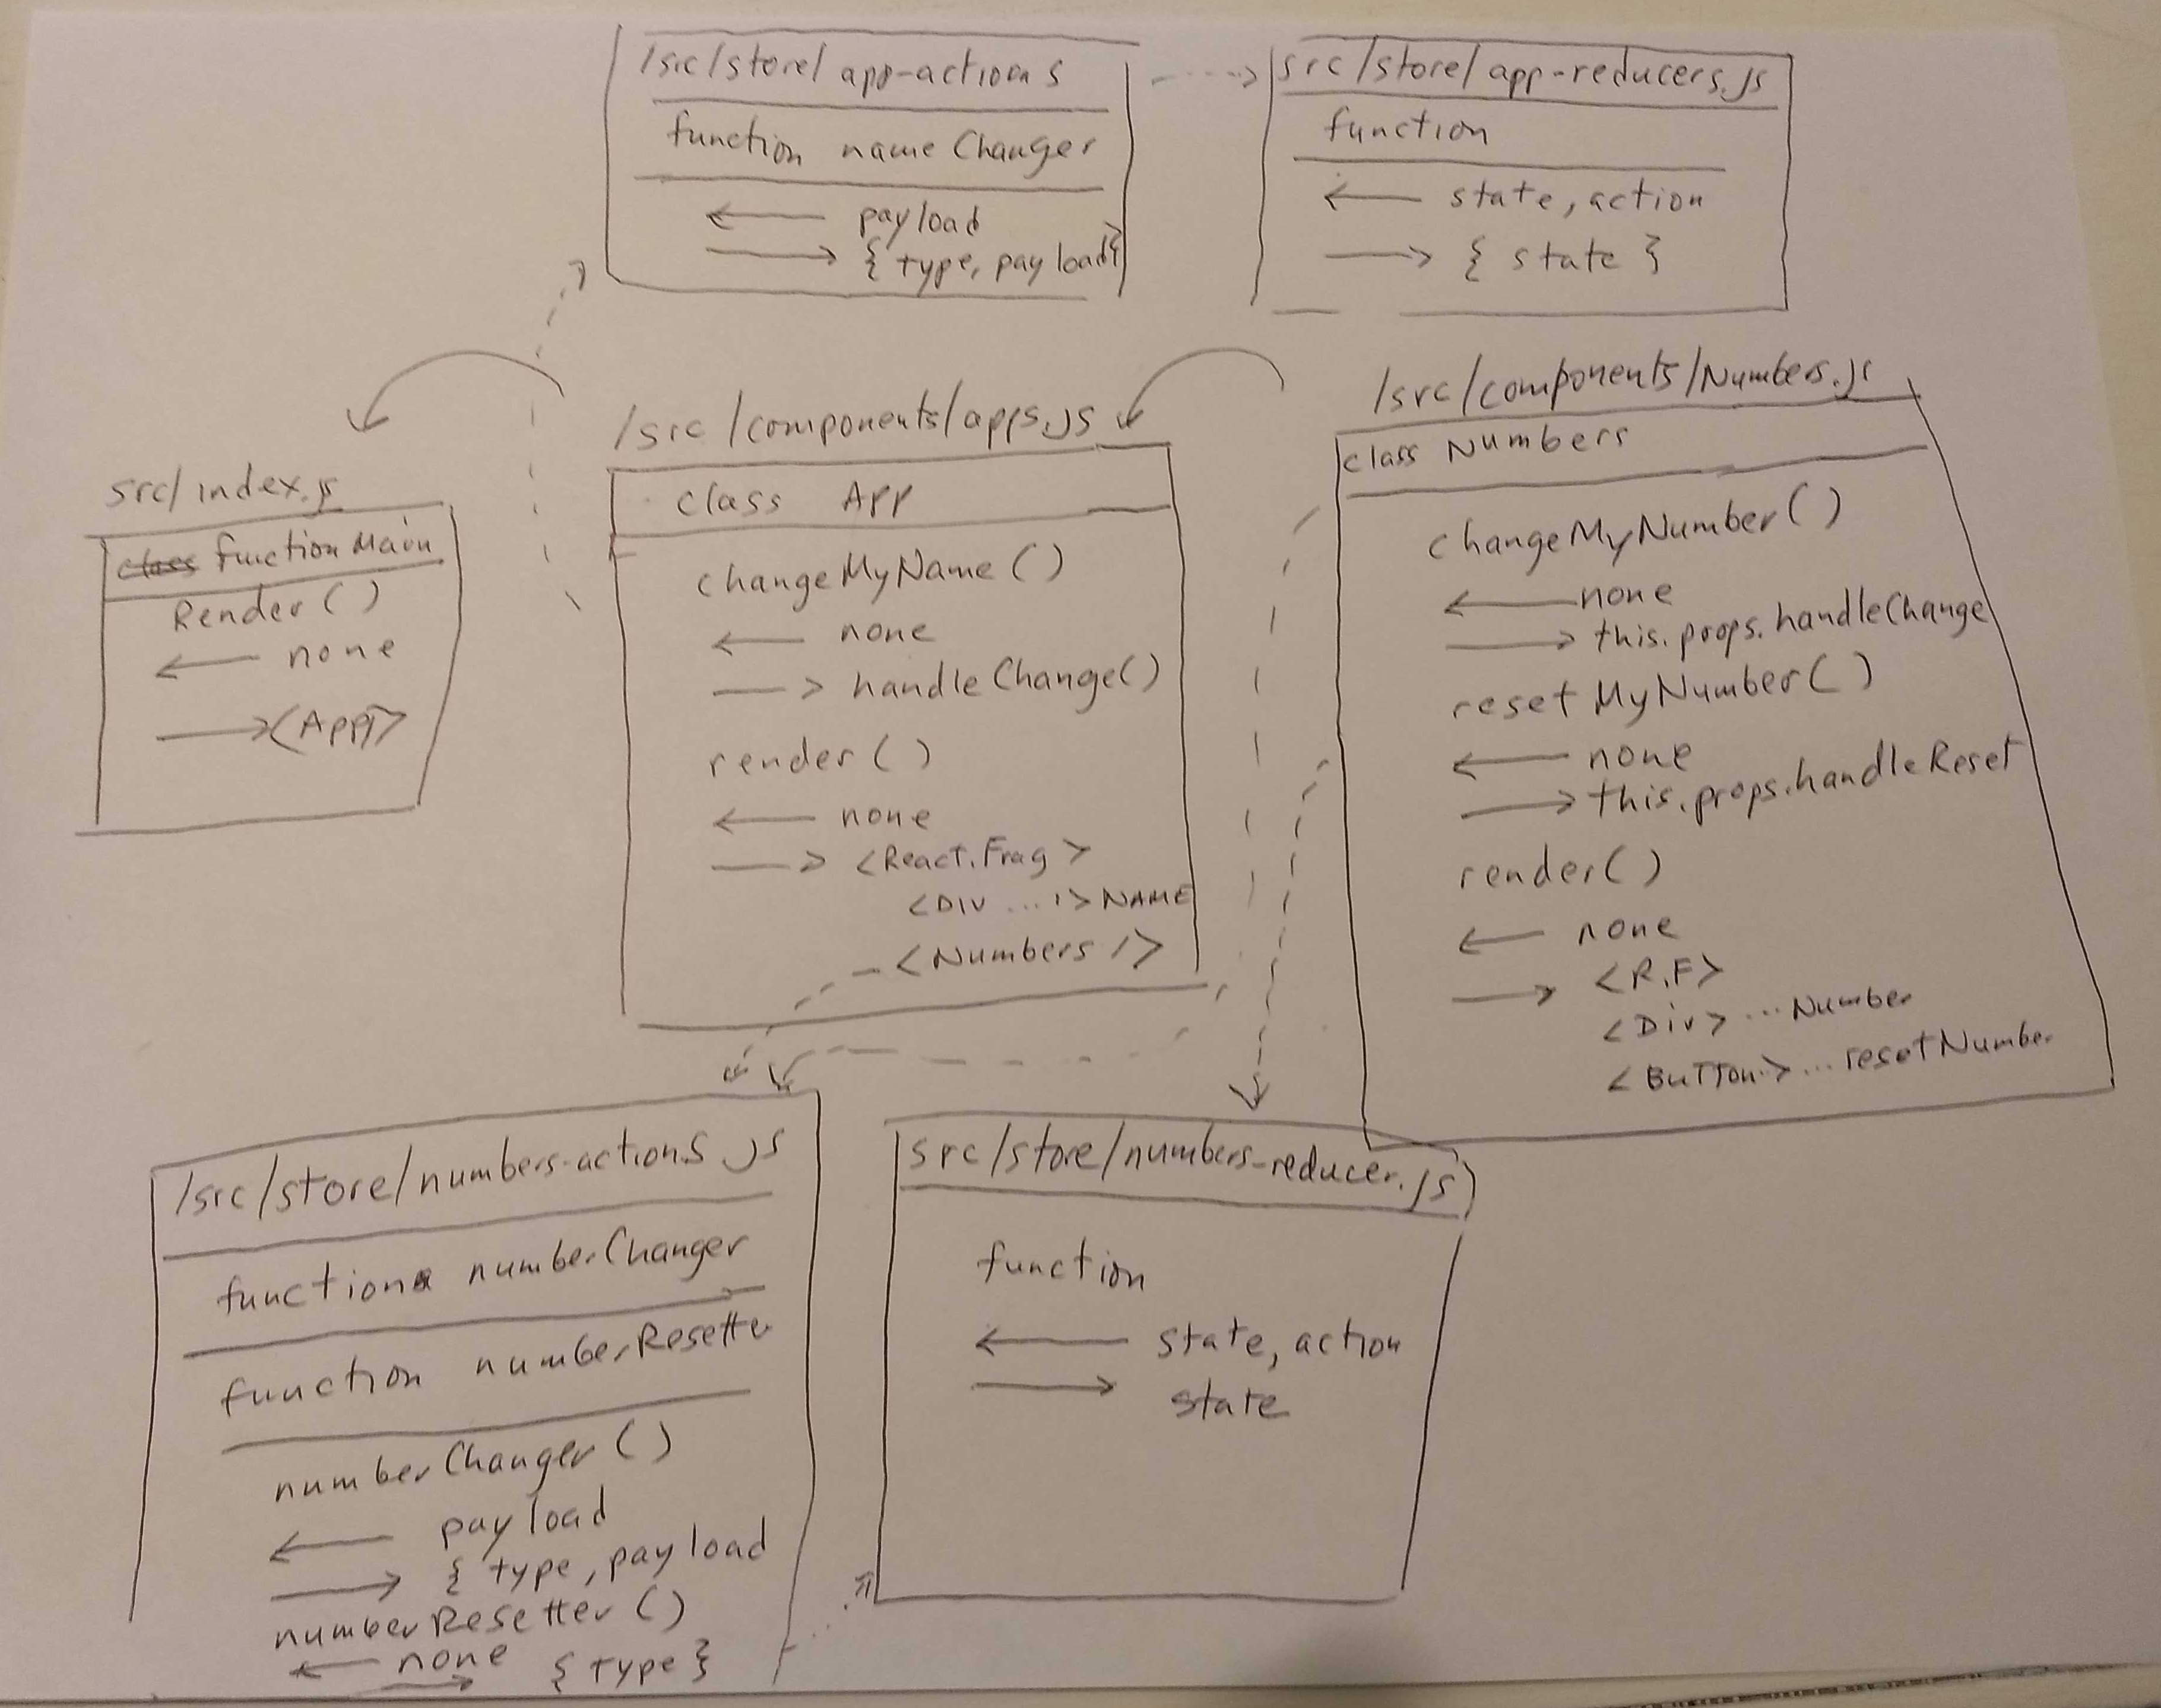 /src/store/app-actions
function nameChanger
← payload
→ { type, payload}
src/store/app-reducers.js
function
← state, action
→ { state }
src/index.js
class function Main
Render()
← none
→ <App/>
/src/components/apps.js
class App
changeMyName()
← none
→ handleChange()
render()
← none
→ <React.Frag>
<DIV .../> NAME
<Numbers />
/src/components/Numbers.js
class Numbers
changeMyNumber()
← none
→ this.props.handleChange
resetMyNumber()
← none
→ this.props.handleReset
render()
← none
→ <R.F>
<Div> ... Number
<BuTTon> ... resetNumber
/src/store/numbers-actions.js
function numberChanger
function numberResetter
numberChanger()
← payload
→ { type, payload
numberResetter()
← none → { type }
src/store/numbers-reducer.js
function
← state, action
→ state